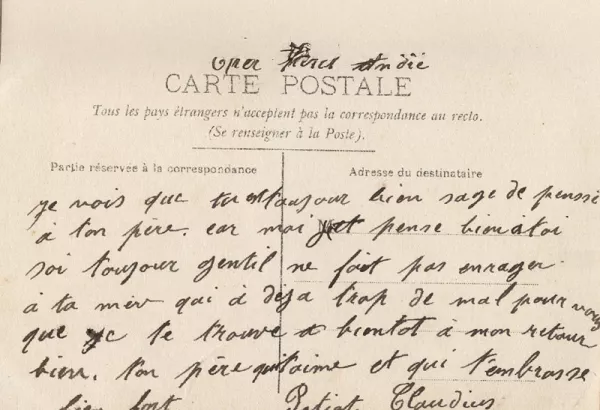 cher André
CARTE POSTALE
Tous les pays étrangers n'acceptent pas la correspondance au recto.
(Se renseigner à la Poste).
Partie réservée à la correspondance
Adresse du destinataire
je vois que tu toujour bien sage de pensé
à ton père. car moi pense bien à toi
soi toujour gentil ne fait pas enrager
à ta mèr qui à déja trop de mal pour vous
que je te trouve a bientot à mon retour
bien. ton père qui t'aime et qui t'embrasse
bien fort Claudius